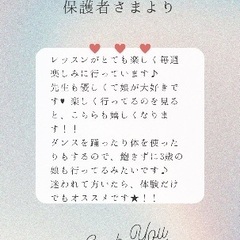 保護者さまより
♥ ♥ ♥
レッスンがとても楽しく毎週
楽しみに行っています♪
先生も優しくて娘が大好きで
す♥ 楽しく行ってるのを見る
と、こちらも嬉しくなりま
す！！
ダンスを踊ったり体を使った
りもするので、飽きずに3歳の
娘も行ってるみたいです♪
迷われて方いたら、体験だけ
でもオススメです★！！
You